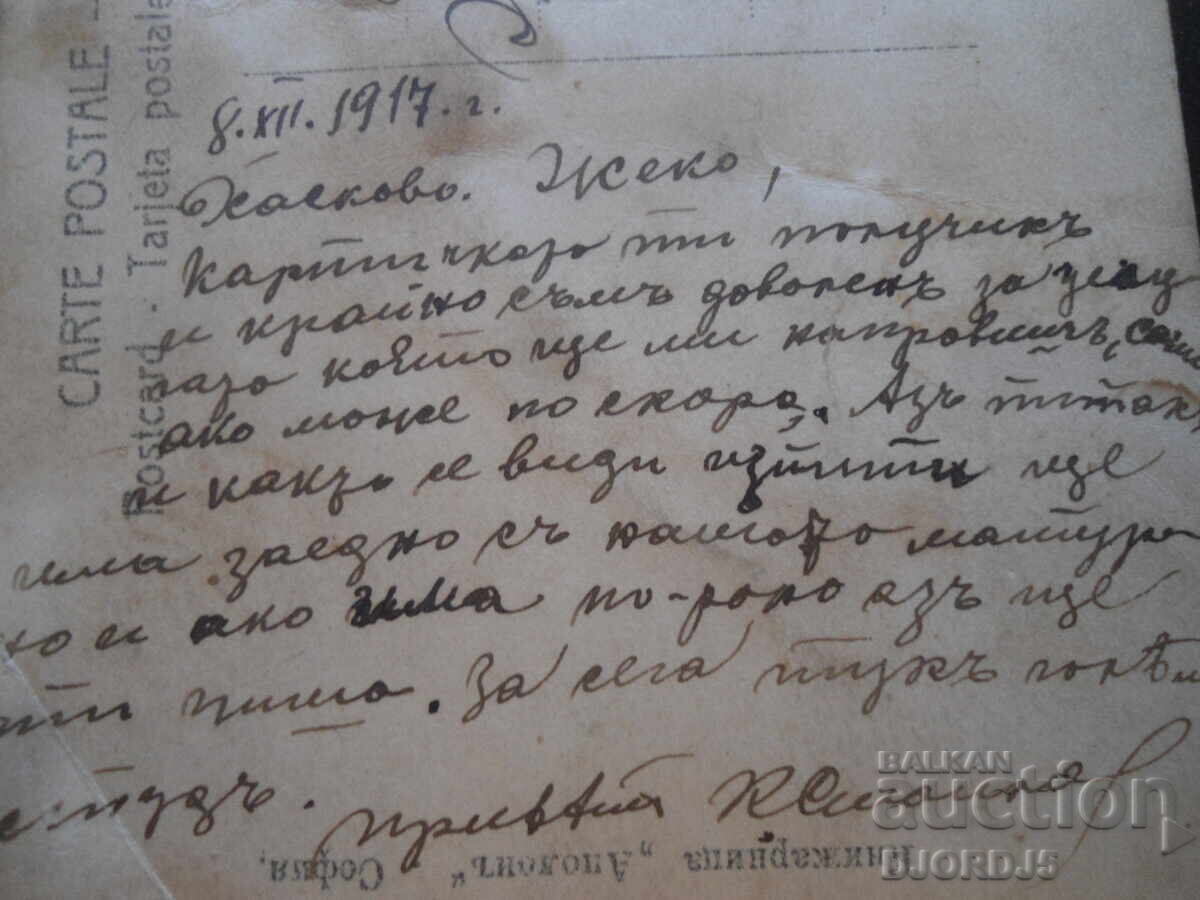 CARTE POSTALE
Postcard. Tarjeta postale
8.XII.1917.г.
Хасково. Жеко,
Картичката ти получихъ
и крайно съмъ доволенъ за
която ще ми направишъ,
ако може по скоро. Азъ
и какъ се види изпити ще
има заедно съ нашата матура
но и ако има по-рано азъ ще
ти пиша. За сега тукъ голѣмъ
студъ.
Привѣтъ
Книжарница „Аполонъ“ София.
BALKAN
auction
DJORDJ5